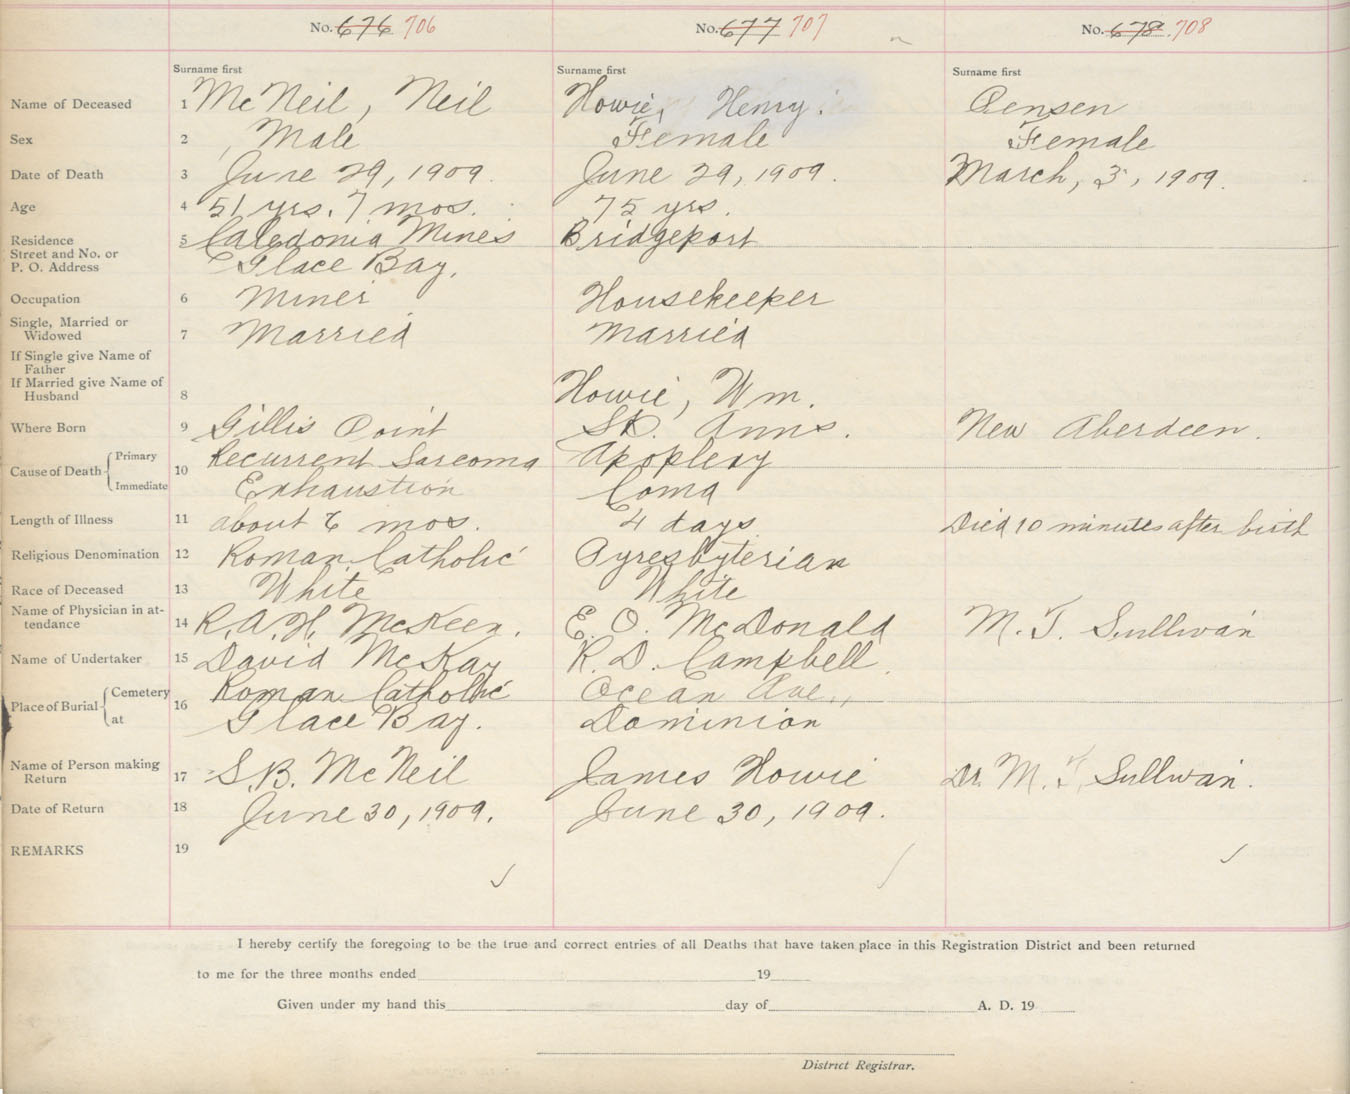 No. 676 706 No. 677 707 No. 678 708
Surname first Surname first Surname first
Name of Deceased 1 McNeil, Neil Howie, Henry. Censen
Sex 2 Male Female Female
Date of Death 3 June 29, 1909. June 29, 1909. March, 3, 1909.
Age 4 51 yrs. 7 mos. 75 yrs.
Residence 5 Caledonia Mines Bridgeport
Street and No. or
P. O. Address Glace Bay.
Occupation 6 Miner Housekeeper
Single, Married or
Widowed 7 Married Married
If Single give Name of
Father
If Married give Name of
Husband 8 Howie, Wm.
Where Born 9 Gillis Point St. Anns. New Aberdeen.
Cause of Death Primary 10 Recurrent Sarcoma Apoplexy
Immediate Exhaustion Coma
Length of Illness 11 about 6 mos. 4 days Died 10 minutes after birth
Religious Denomination 12 Roman Catholic Pyresbyterian
Race of Deceased 13 White White
Name of Physician in at-
tendance 14 R. A. H. McKeen. E. O. McDonald M. T. Sullivan
Name of Undertaker 15 David McKay R. D. Campbell
Place of Burial Cemetery 16 Roman Catholic Ocean Ave.,
at Glace Bay. Dominion
Name of Person making
Return 17 S. B. McNeil James Howie Dr. M. T. Sullivan.
Date of Return 18 June 30, 1909. June 30, 1909.
REMARKS 19
I hereby certify the foregoing to be the true and correct entries of all Deaths that have taken place in this Registration District and been returned
to me for the three months ended 19
Given under my hand this day of A. D. 19
District Registrar.